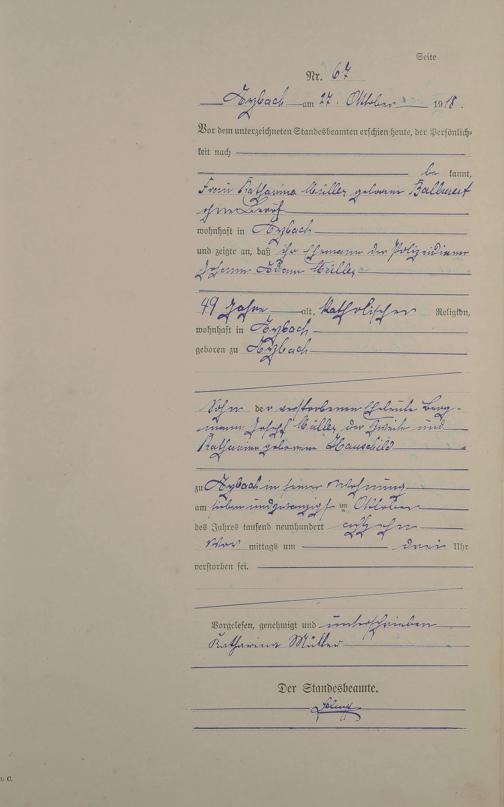 Seite
Nr. 67
am 27. Oktober 1918.
Vor dem unterzeichneten Standesbeamten erschien heute, der Persönlich-
keit nach
be kannt,
Frau Katharina Müller geborene
ohne Beruf
wohnhaft in
und zeigte an, daß ihr Ehemann der Polizeidiener
Johann Adam Müller
49 Jahre alt, katholischer Religion,
wohnhaft in
geboren zu
Sohn der verstorbenen Eheleute Berg-
mann Joseph Müller der Zweite und
Katharina geborene Hauschild
zu in seiner Wohnung
am sieben undzwanzigsten Oktober
des Jahres tausend neunhundert achtzehn
Vor mittags um drei Uhr
verstorben sei.
Vorgelesen, genehmigt und unterschrieben
Katharina Müller
Der Standesbeamte.